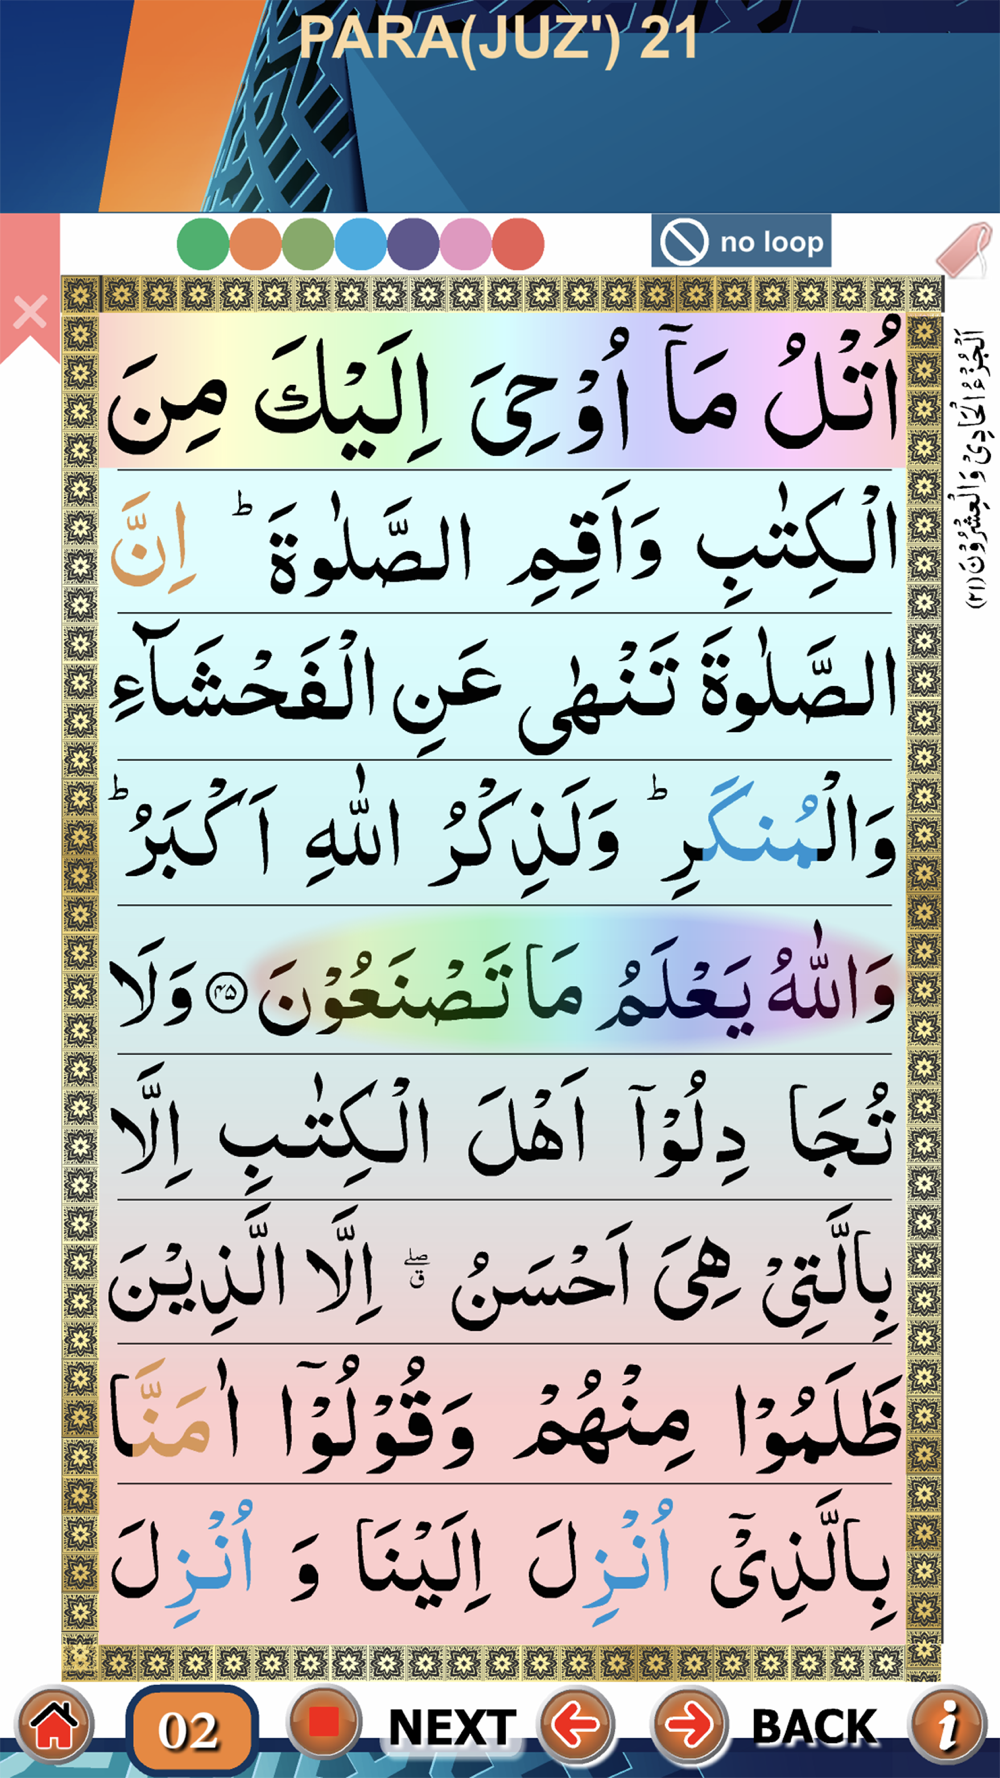 PARA(JUZ') 21
no loop
اَلْجُزْءُ الْحَادِیْ وَالْعِشْرُوْنَ (۲۱)
اُتْلُ مَاۤ اُوْحِیَ اِلَیْكَ مِنَ
الْكِتٰبِ وَاَقِمِ الصَّلٰوةَ ؕ اِنَّ
الصَّلٰوةَ تَنْهٰی عَنِ الْفَحْشَآءِ
وَالْمُنكَرِ ؕ وَلَذِكْرُ اللّٰهِ اَكْبَرُ ؕ
وَاللّٰهُ یَعْلَمُ مَا تَصْنَعُوْنَ ۴۵ وَلَا
تُجَا دِلُوْۤا اَهْلَ الْكِتٰبِ اِلَّا
بِالَّتِیْ هِیَ اَحْسَنُ ۖق اِلَّا الَّذِیْنَ
ظَلَمُوْا مِنْهُمْ وَقُوْلُوْۤا اٰمَنَّا
بِالَّذِیْۤ اُنْزِلَ اِلَیْنَا وَ اُنْزِلَ
02 NEXT BACK i